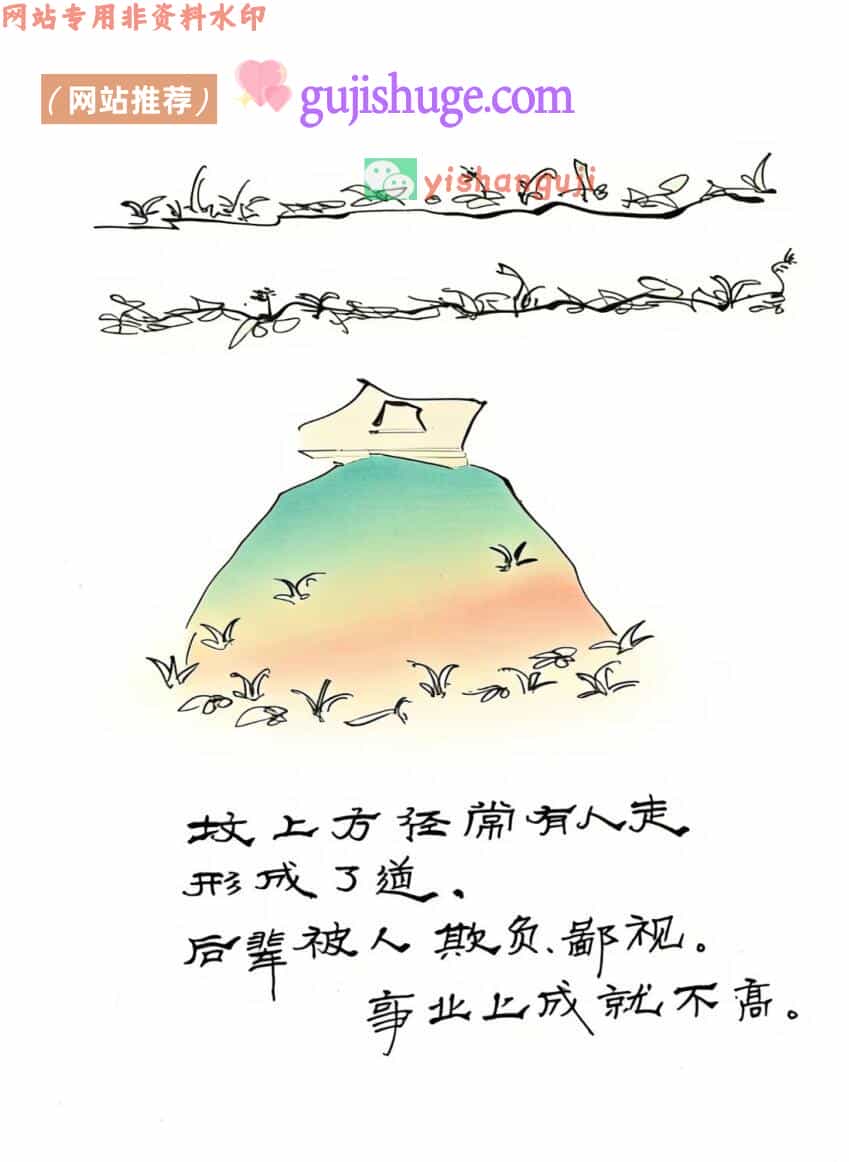 网站专用非资料水印
（网站推荐） gujishuge.com
yishanguji
坟上方径常有人走
形成了道、
后辈被人欺负、鄙视。
事业上成就不高。